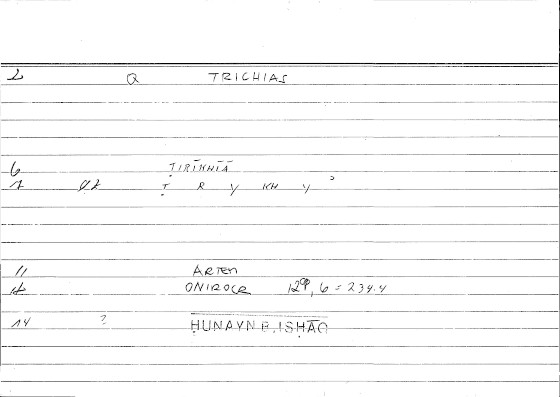 2 Q TRICHIAS
6 ṬIRĪKHIĀ
7 02 Ṭ R Y KH Y ᵓ
11 ARTEM
12 ONIROCR 129, 6 = 234.4
14 ? ḤUNAYN B. ISḤĀQ